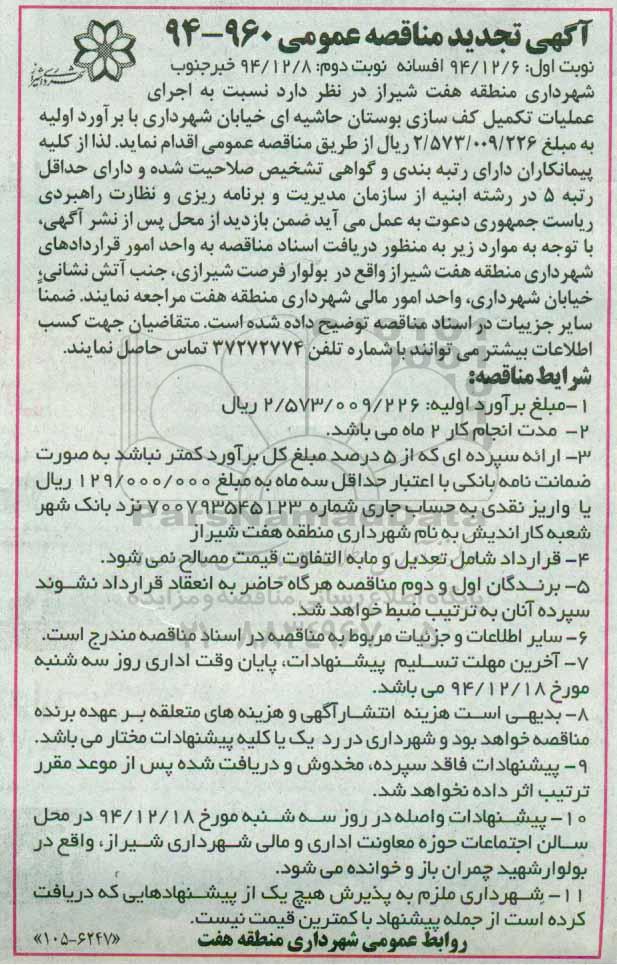 آگهی تجدید مناقصه عمومی ۹۶۰-۹۴
نوبت اول: ۹۴/۱۲/۶ افسانه نوبت دوم: ۹۴/۱۲/۸ خبرجنوب
شهرداری شیراز
شهرداری منطقه هفت شیراز در نظر دارد نسبت به اجرای
عملیات تکمیل کف سازی بوستان حاشیه ای خیابان شهرداری با برآورد اولیه
به مبلغ ۲/۵۷۳/۰۰۹/۲۲۶ ریال از طریق مناقصه عمومی اقدام نماید. لذا از کلیه
پیمانکاران دارای رتبه بندی و گواهی تشخیص صلاحیت شده و دارای حداقل
رتبه ۵ در رشته ابنیه از سازمان مدیریت و برنامه ریزی و نظارت راهبردی
ریاست جمهوری دعوت به عمل می آید ضمن بازدید از محل پس از نشر آگهی،
با توجه به موارد زیر به منظور دریافت اسناد مناقصه به واحد امور قراردادهای
شهرداری منطقه هفت شیراز واقع در بولوار فرصت شیرازی، جنب آتش نشانی،
خیابان شهرداری، واحد امور مالی شهرداری منطقه هفت مراجعه نمایند. ضمناً
سایر جزییات در اسناد مناقصه توضیح داده شده است. متقاضیان جهت کسب
اطلاعات بیشتر می توانند با شماره تلفن ۳۷۲۷۲۷۷۴ تماس حاصل نمایند.
شرایط مناقصه:
۱-مبلغ برآورد اولیه: ۲/۵۷۳/۰۰۹/۲۲۶ ریال
۲- مدت انجام کار ۲ ماه می باشد.
۳- ارائه سپرده ای که از ۵ درصد مبلغ کل برآورد کمتر نباشد به صورت
ضمانت نامه بانکی با اعتبار حداقل سه ماه به مبلغ ۱۲۹/۰۰۰/۰۰۰ ریال
یا واریز نقدی به حساب جاری شماره ۷۰۰۷۹۳۵۴۵۱۲۳ نزد بانک شهر
شعبه کاراندیش به نام شهرداری منطقه هفت شیراز
۴- قرارداد شامل تعدیل و مابه التفاوت قیمت مصالح نمی شود.
۵- برندگان اول و دوم مناقصه هرگاه حاضر به انعقاد قرارداد نشوند
سپرده آنان به ترتیب ضبط خواهد شد.
۶- سایر اطلاعات و جزئیات مربوط به مناقصه در اسناد مناقصه مندرج است.
۷- آخرین مهلت تسلیم پیشنهادات، پایان وقت اداری روز سه شنبه
مورخ ۹۴/۱۲/۱۸ می باشد.
۸- بدیهی است هزینه انتشارآگهی و هزینه های متعلقه بر عهده برنده
مناقصه خواهد بود و شهرداری در رد یک یا کلیه پیشنهادات مختار می باشد.
۹- پیشنهادات فاقد سپرده، مخدوش و دریافت شده پس از موعد مقرر
ترتیب اثر داده نخواهد شد.
۱۰- پیشنهادات واصله در روز سه شنبه مورخ ۹۴/۱۲/۱۸ در محل
سالن اجتماعات حوزه معاونت اداری و مالی شهرداری شیراز، واقع در
بولوارشهید چمران باز و خوانده می شود.
۱۱- شهرداری ملزم به پذیرش هیچ یک از پیشنهادهایی که دریافت
کرده است از جمله پیشنهاد با کمترین قیمت نیست.
روابط عمومی شهرداری منطقه هفت
«۱۰۵-۶۲۴۷»
ParsNamadData
پایگاه اطلاع رسانی مناقصه و مزایده